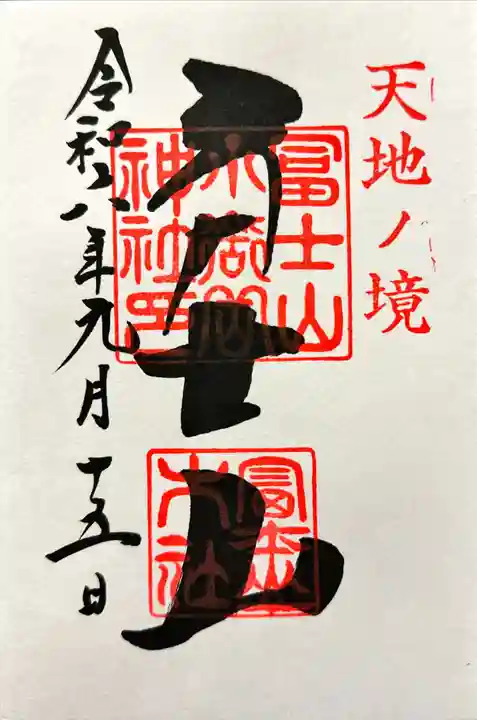 天地ノ境
冨士山
小御嶽
神社印
士山
令和六年九月十五日